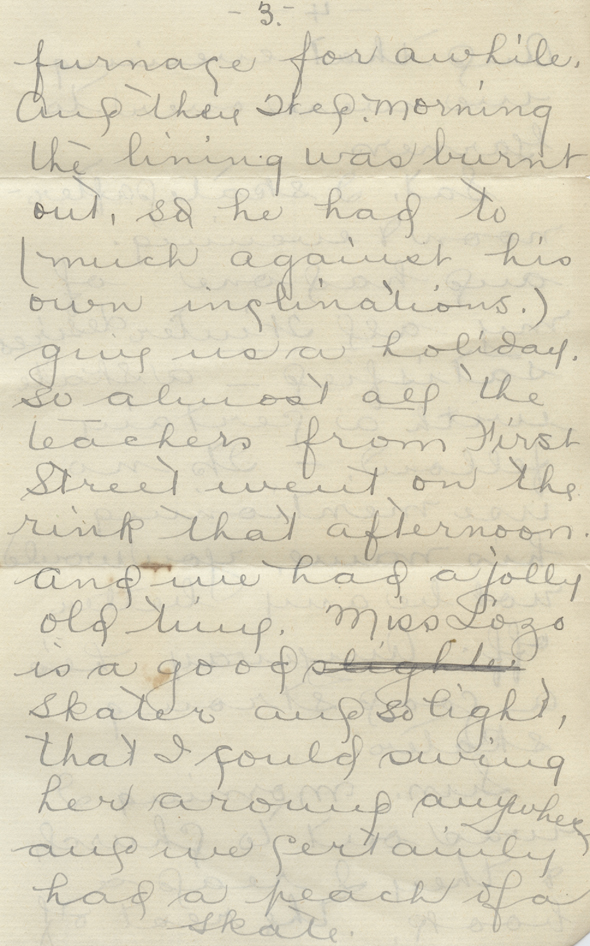 - 3. -
furnace for awhile.
And then Wed. morning
the lining was burnt
out, so he had to
(much against his
own inclinations.)
give us a holiday.
So almost all the
teachers from First
Street went on the
rink that afternoon.
and we had a jolly
old time. Miss Lozo
is a good slighter
skater and so light,
that I could swing
her around anywhere
and we certainly
had a peach of a
skate.